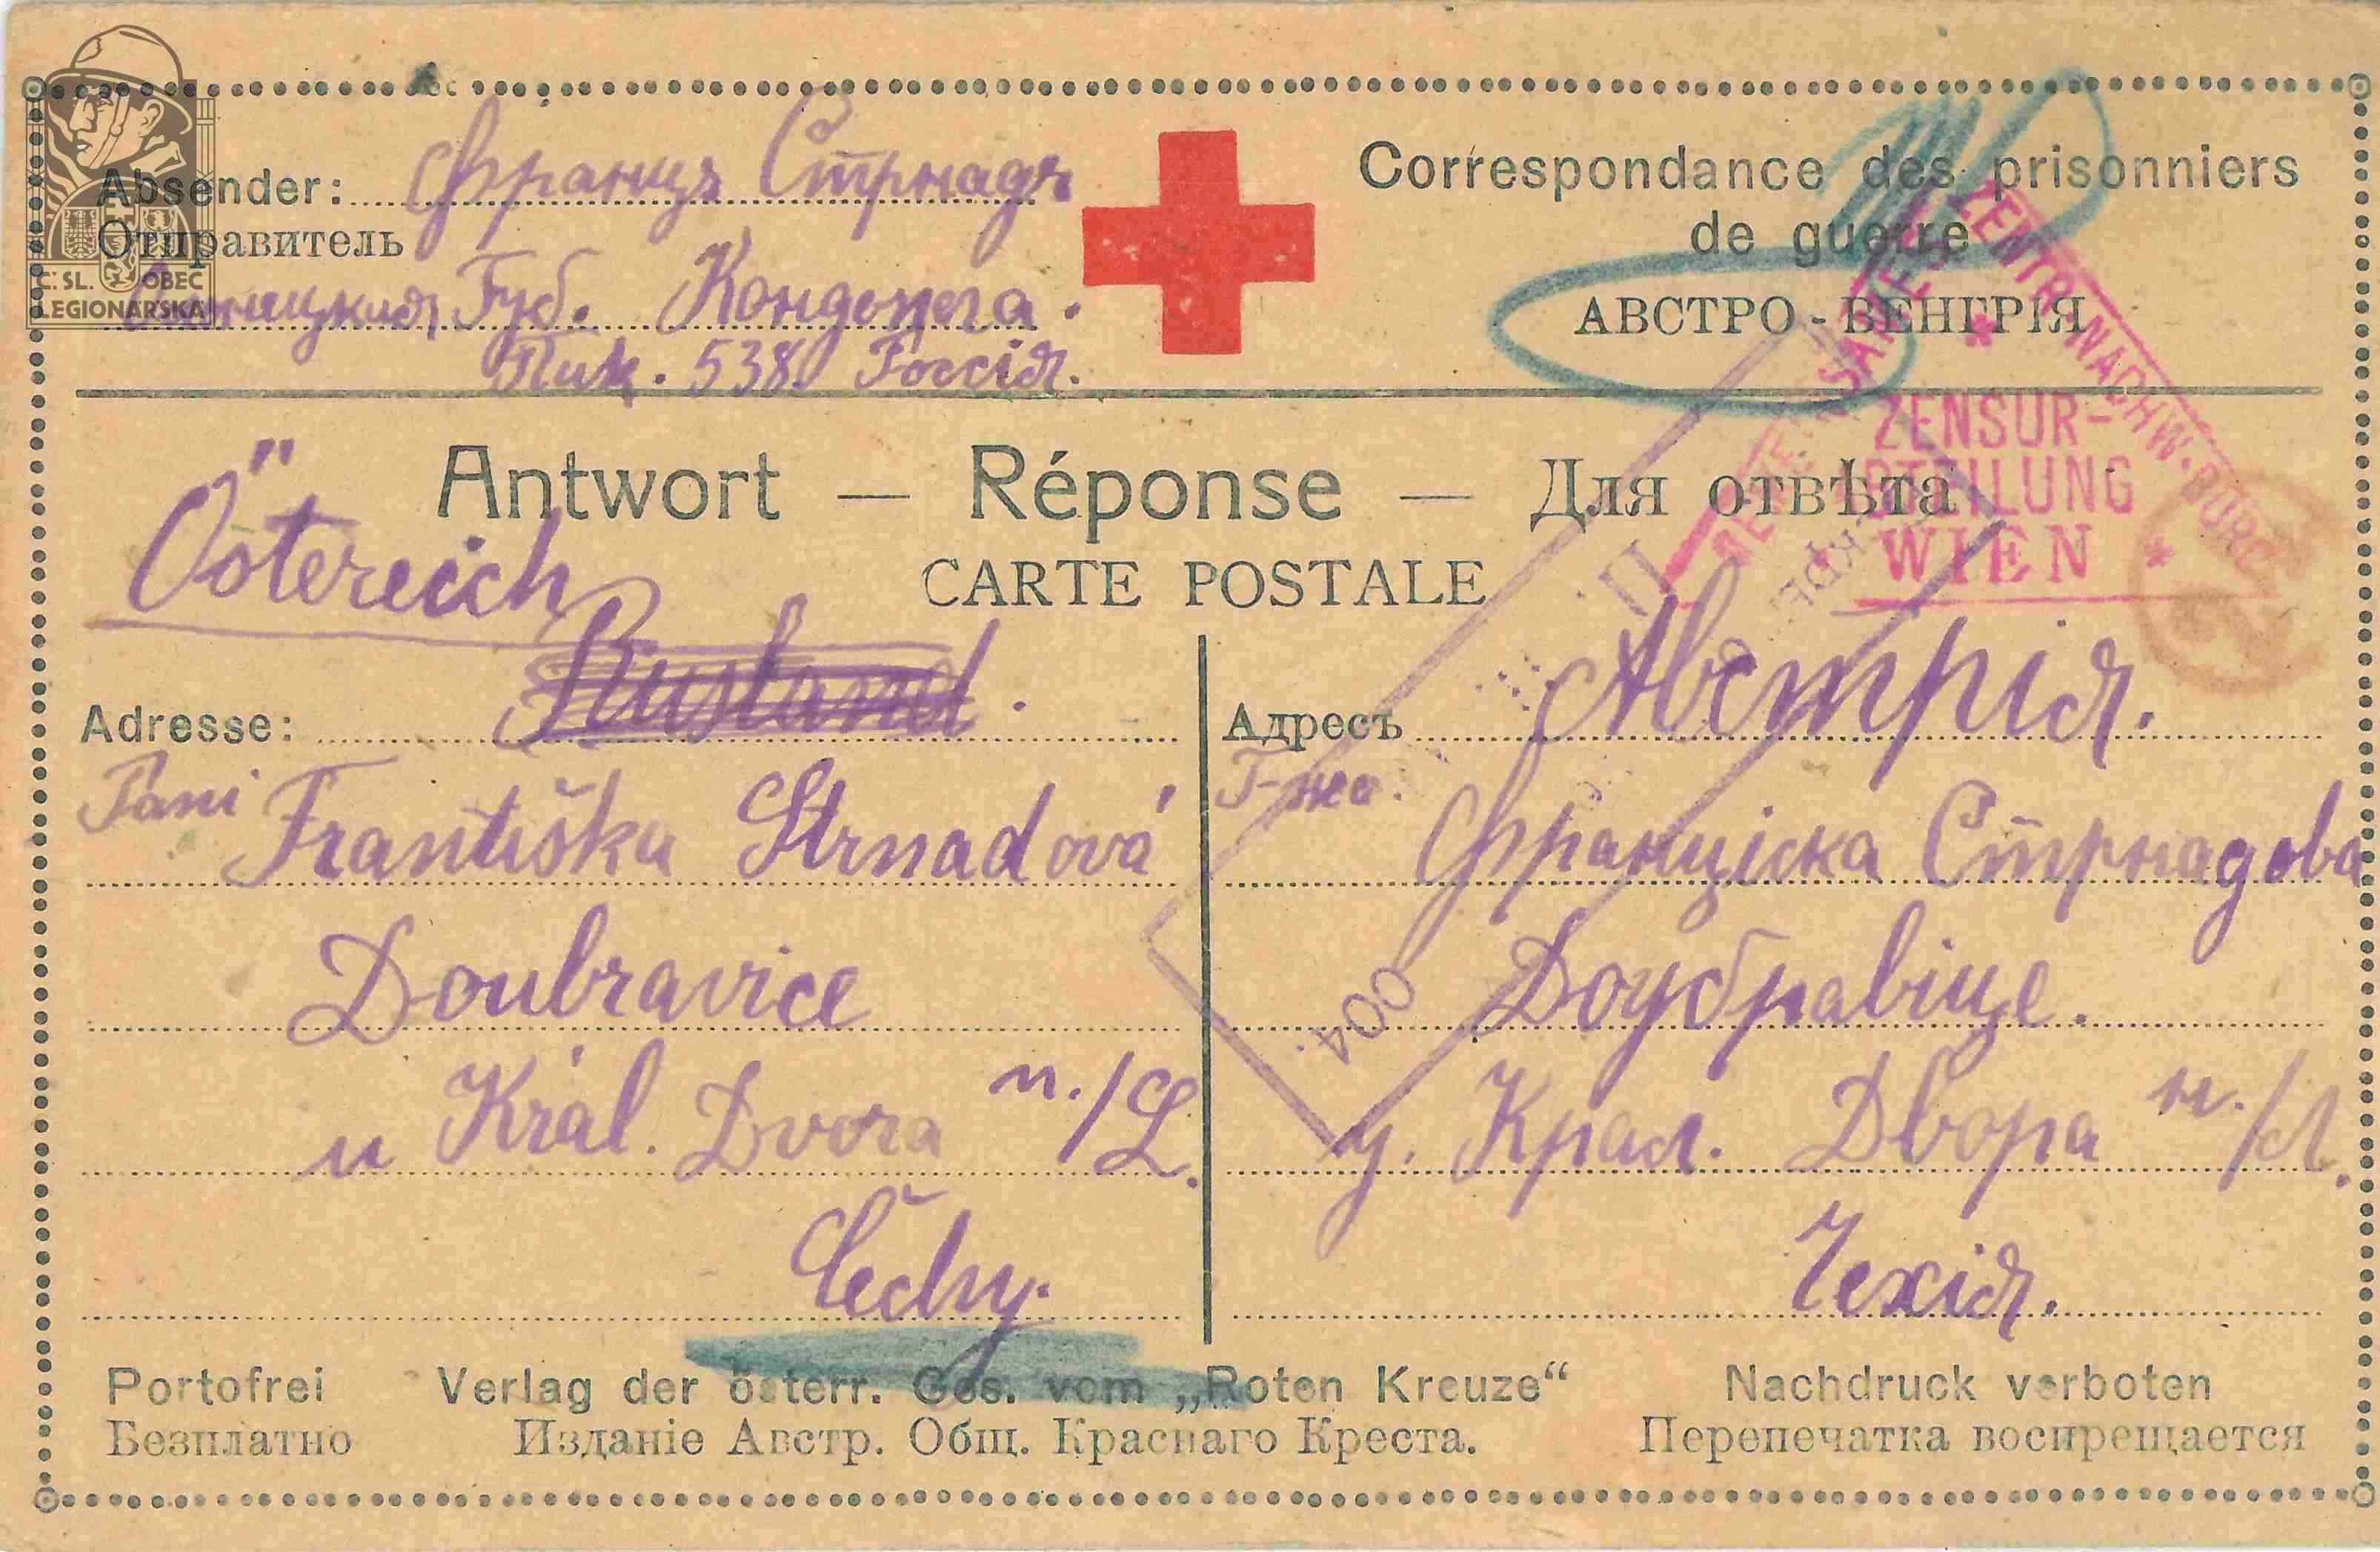 Č. SL. OBEC
LEGIONÁŘSKÁ
Absender: Францъ Стрнадъ
Отправитель
Губ. Кондопога.
Пик. 538. Россія.
Correspondance des prisonniers
de guerre
АВСТРО-ВЕНГРІЯ
ZENSUR-
ABTEILUNG
WIEN
Antwort — Réponse — Для отвѣта
CARTE POSTALE
Östereich
Rusland.
Adresse:
Paní Františka Strnadová
Doubravice
u Král. Dvora n./L.
Čechy.
Адресъ Австрія.
Г-жа. Франціска Стрнадова
Доубравіце.
у. Крал. Двора н./Л.
Чехія.
400
Portofrei Verlag der österr. Ges. vom „Roten Kreuze“ Nachdruck verboten
Безплатно Изданіе Австр. Общ. Краснаго Креста. Перепечатка воспрещается